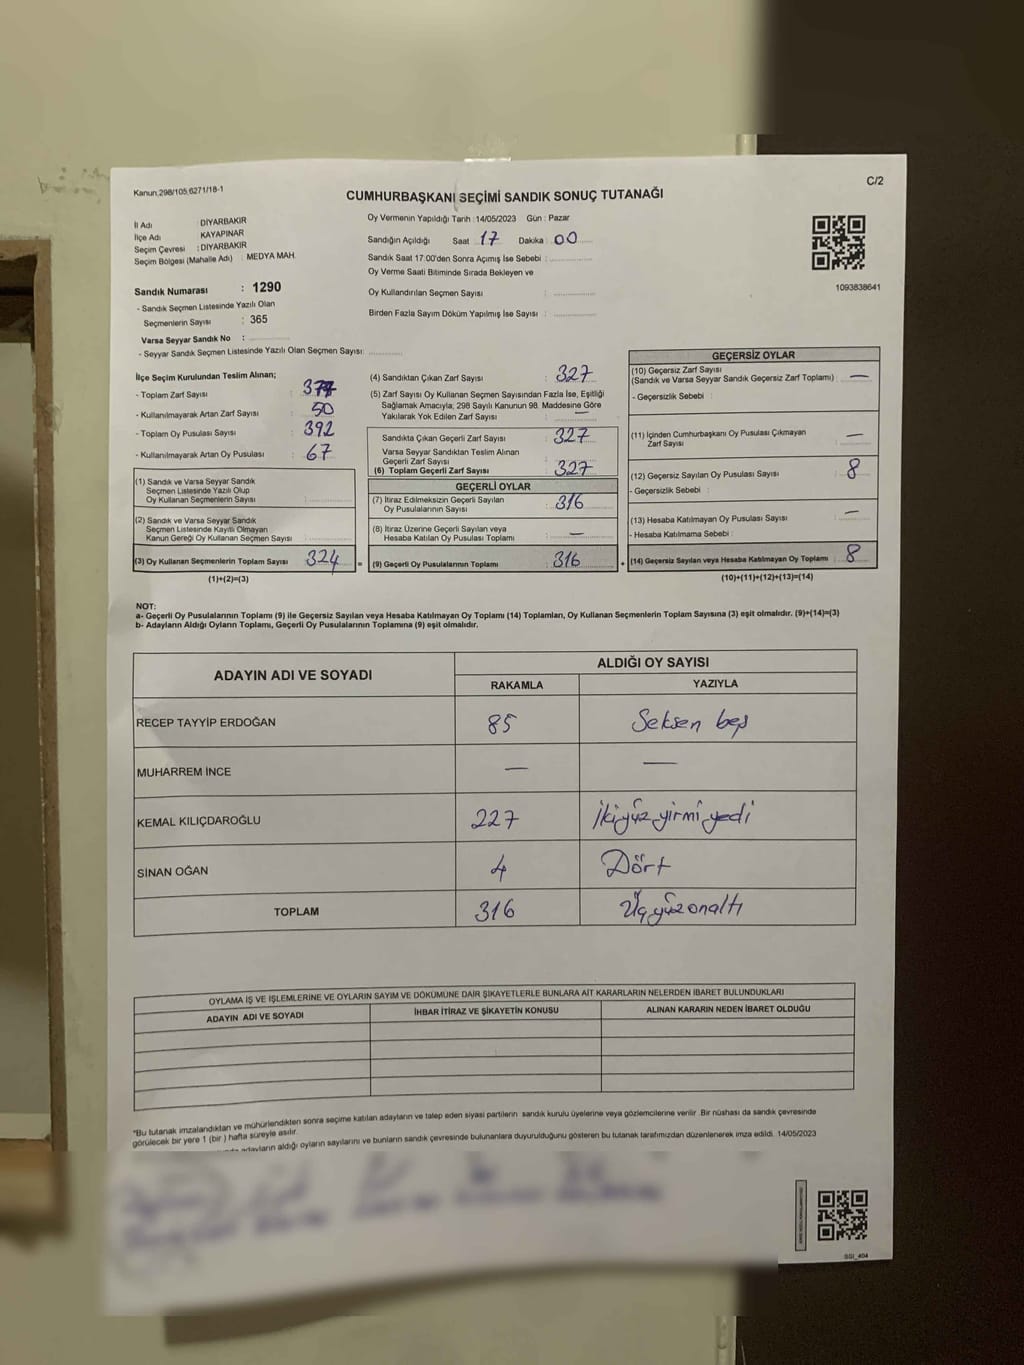 Kanun;298/105,6271/18-1
C/2
CUMHURBAŞKANI SEÇİMİ SANDIK SONUÇ TUTANAĞI
İl Adı DİYARBAKIR
İlçe Adı KAYAPINAR
Seçim Çevresi : DİYARBAKIR
Seçim Bölgesi (Mahalle Adı) : MEDYA MAH.
Sandık Numarası : 1290
- Sandık Seçmen Listesinde Yazılı Olan
Seçmenlerin Sayısı : 365
Varsa Seyyar Sandık No :
- Seyyar Sandık Seçmen Listesinde Yazılı Olan Seçmen Sayısı:
Oy Vermenin Yapıldığı Tarih : 14/05/2023 Gün : Pazar
Sandığın Açıldığı Saat 17 Dakika : 00
Sandık Saat 17:00'den Sonra Açımış İse Sebebi :
Oy Verme Saati Bitiminde Sırada Bekleyen ve
Oy Kullandırılan Seçmen Sayısı :
Birden Fazla Sayım Döküm Yapılmış İse Sayısı :
1093838641
İlçe Seçim Kurulundan Teslim Alınan;
- Toplam Zarf Sayısı : 377
- Kullanılmayarak Artan Zarf Sayısı : 50
- Toplam Oy Pusulası Sayısı : 392
- Kullanılmayarak Artan Oy Pusulası : 67
(1) Sandık ve Varsa Seyyar Sandık
Seçmen Listesinde Yazılı Olup
Oy Kullanan Seçmenlerin Sayısı :
(2) Sandık ve Varsa Seyyar Sandık
Seçmen Listesinde Kayıtlı Olmayan
Kanun Gereği Oy Kullanan Seçmen Sayısı :
(3) Oy Kullanan Seçmenlerin Toplam Sayısı : 324
(1)+(2)=(3)
(4) Sandıktan Çıkan Zarf Sayısı : 327
(5) Zarf Sayısı Oy Kullanan Seçmen Sayısından Fazla İse, Eşitliği
Sağlamak Amacıyla; 298 Sayılı Kanunun 98. Maddesine Göre
Yakılarak Yok Edilen Zarf Sayısı : —
Sandıkta Çıkan Geçerli Zarf Sayısı : 327
Varsa Seyyar Sandıktan Teslim Alınan
Geçerli Zarf Sayısı :
(6) Toplam Geçerli Zarf Sayısı : 327
GEÇERLİ OYLAR
(7) İtiraz Edilmeksizin Geçerli Sayılan
Oy Pusulalarının Sayısı : 316
(8) İtiraz Üzerine Geçerli Sayılan veya
Hesaba Katılan Oy Pusulası Toplamı : —
= (9) Geçerli Oy Pusulalarının Toplamı : 316
GEÇERSİZ OYLAR
(10) Geçersiz Zarf Sayısı
(Sandık ve Varsa Seyyar Sandık Geçersiz Zarf Toplamı) : —
- Geçersizlik Sebebi :
(11) İçinden Cumhurbaşkanı Oy Pusulası Çıkmayan
Zarf Sayısı : —
(12) Geçersiz Sayılan Oy Pusulası Sayısı : 8
- Geçersizlik Sebebi :
(13) Hesaba Katılmayan Oy Pusulası Sayısı : —
- Hesaba Katılmama Sebebi :
+ (14) Geçersiz Sayılan veya Hesaba Katılmayan Oy Toplamı : 8
(10)+(11)+(12)+(13)=(14)
NOT:
a- Geçerli Oy Pusulalarının Toplamı (9) ile Geçersiz Sayılan veya Hesaba Katılmayan Oy Toplamı (14) Toplamları, Oy Kullanan Seçmenlerin Toplam Sayısına (3) eşit olmalıdır. (9)+(14)=(3)
b- Adayların Aldığı Oyların Toplamı, Geçerli Oy Pusulalarının Toplamına (9) eşit olmalıdır.
ADAYIN ADI VE SOYADI
ALDIĞI OY SAYISI
RAKAMLA YAZIYLA
RECEP TAYYİP ERDOĞAN 85 Seksen beş
MUHARREM İNCE — —
KEMAL KILIÇDAROĞLU 227 İkiyüz yirmi yedi
SİNAN OĞAN 4 Dört
TOPLAM 316 Üçyüz onaltı
OYLAMA İŞ VE İŞLEMLERİNE VE OYLARIN SAYIM VE DÖKÜMÜNE DAİR ŞİKAYETLERLE BUNLARA AİT KARARLARIN NELERDEN İBARET BULUNDUKLARI
ADAYIN ADI VE SOYADI İHBAR İTİRAZ VE ŞİKAYETİN KONUSU ALINAN KARARIN NEDEN İBARET OLDUĞU
*Bu tutanak imzalandıktan ve mühürlendikten sonra seçime katılan adayların ve talep eden siyasi partilerin sandık kurulu üyelerine veya gözlemcilerine verilir. Bir nüshası da sandık çevresinde
görülecek bir yere 1 (bir) hafta süreyle asılır.
adayların aldığı oyların sayılarını ve bunların sandık çevresinde bulunanlara duyurulduğunu gösteren bu tutanak tarafımızdan düzenlenerek imza edildi. 14/05/2023
SSI_404